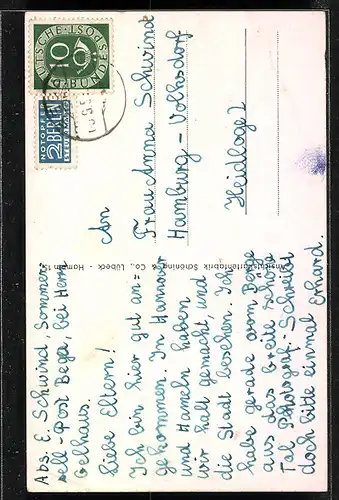 Abs. E. Schwind, Sommer-
sell - Post Bega, bei Herrn
Gelhaus.
Liebe Eltern!
Ich bin hier gut an-
gekommen. In Hannover
und Hameln haben
wir halt gemacht, und
die Stadt besehen. Ich
habe gerade vom Berge
aus das breite schöne
Tal photograf. Schreibt
doch bitte einmal Erhard.
Ansichtskartenfabrik Schöning & Co., Lübeck
An
Frau Anna Schwinde
Hamburg - Volksdorf
Heidloge 2
DEUTSCHE BUNDESPOST
10
NOTOPFER
2 BERLIN
STEUERMARKE